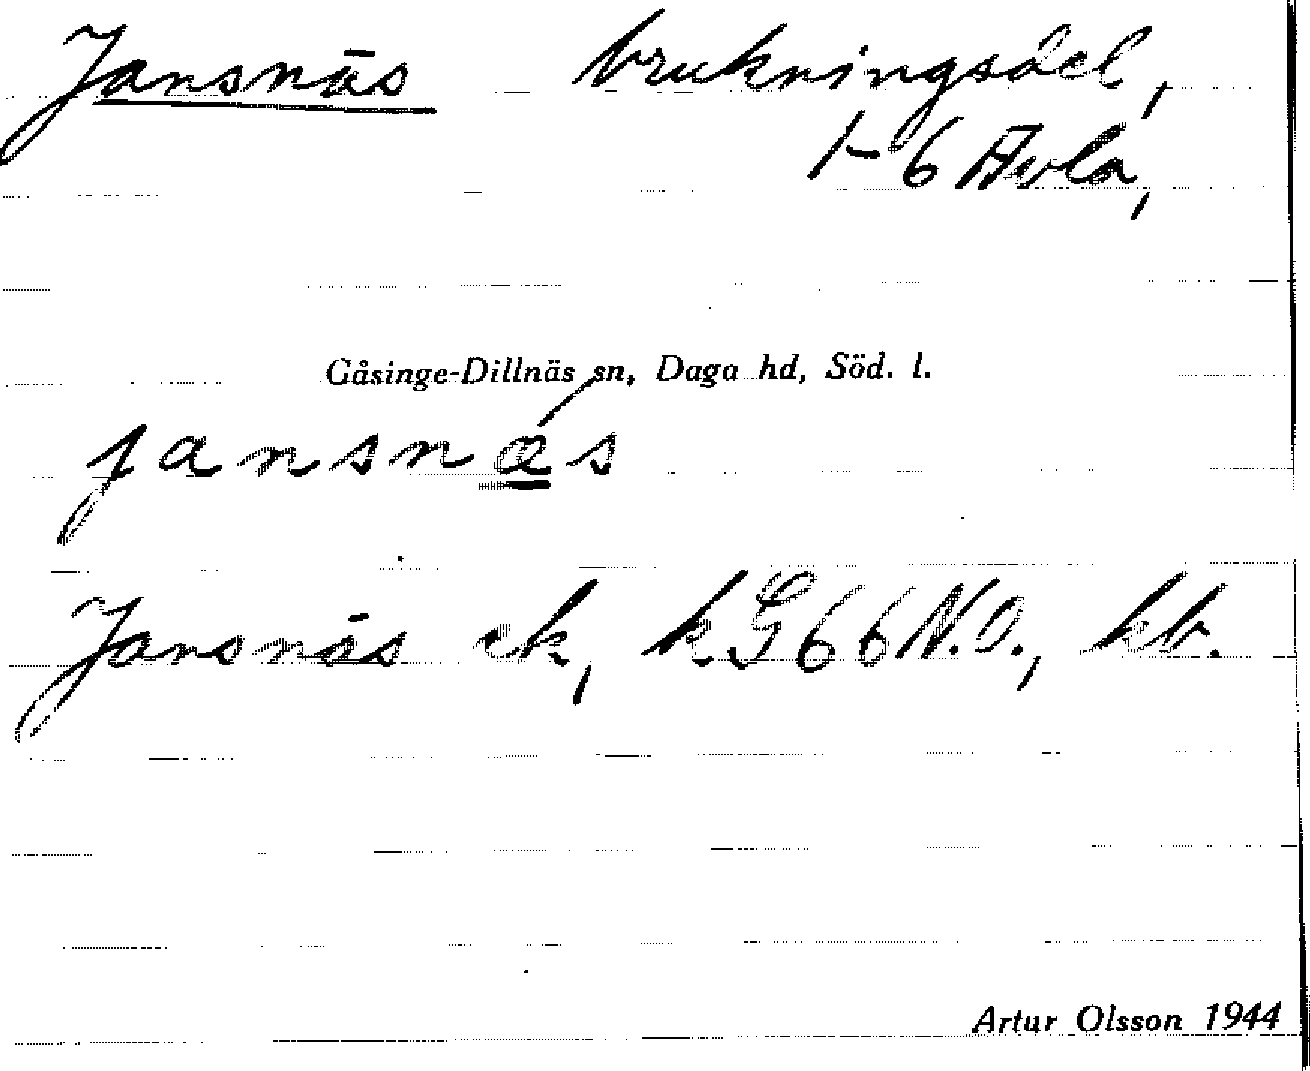 Jansnäs brukningsdel,
1-6 Avla,
Gåsinge-Dillnäs sn, Daga hd, Söd. l.
jansnä́s
Jansnäs ek, k G 66 N.O., kb.
Artur Olsson 1944